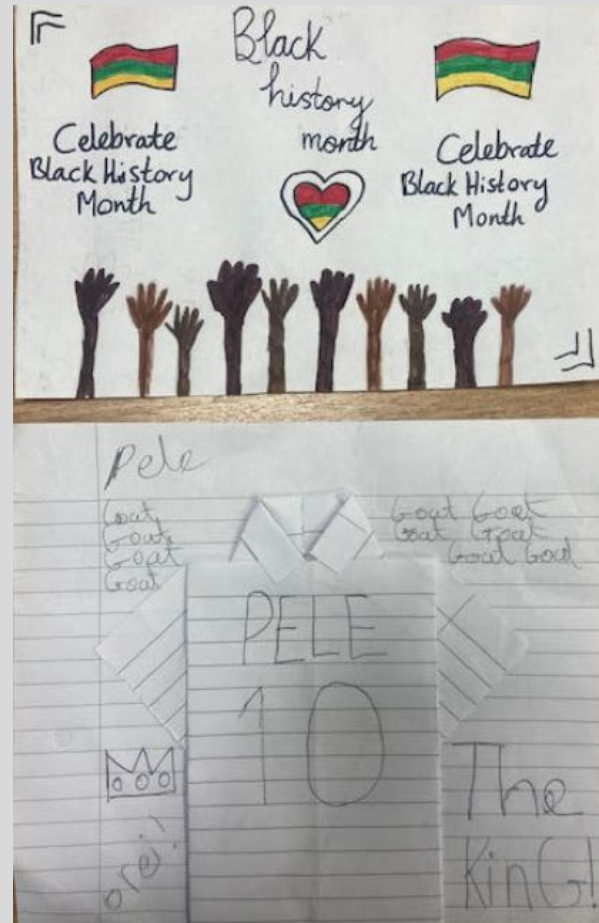 Black
history
month
Celebrate
Black History
Month
Celebrate
Black History
Month
Pele
Goat
Goat
Goat
Goat
Goat Goat
Goat Goat
Goat Goat
PELE
10
orei!
The
KinG!